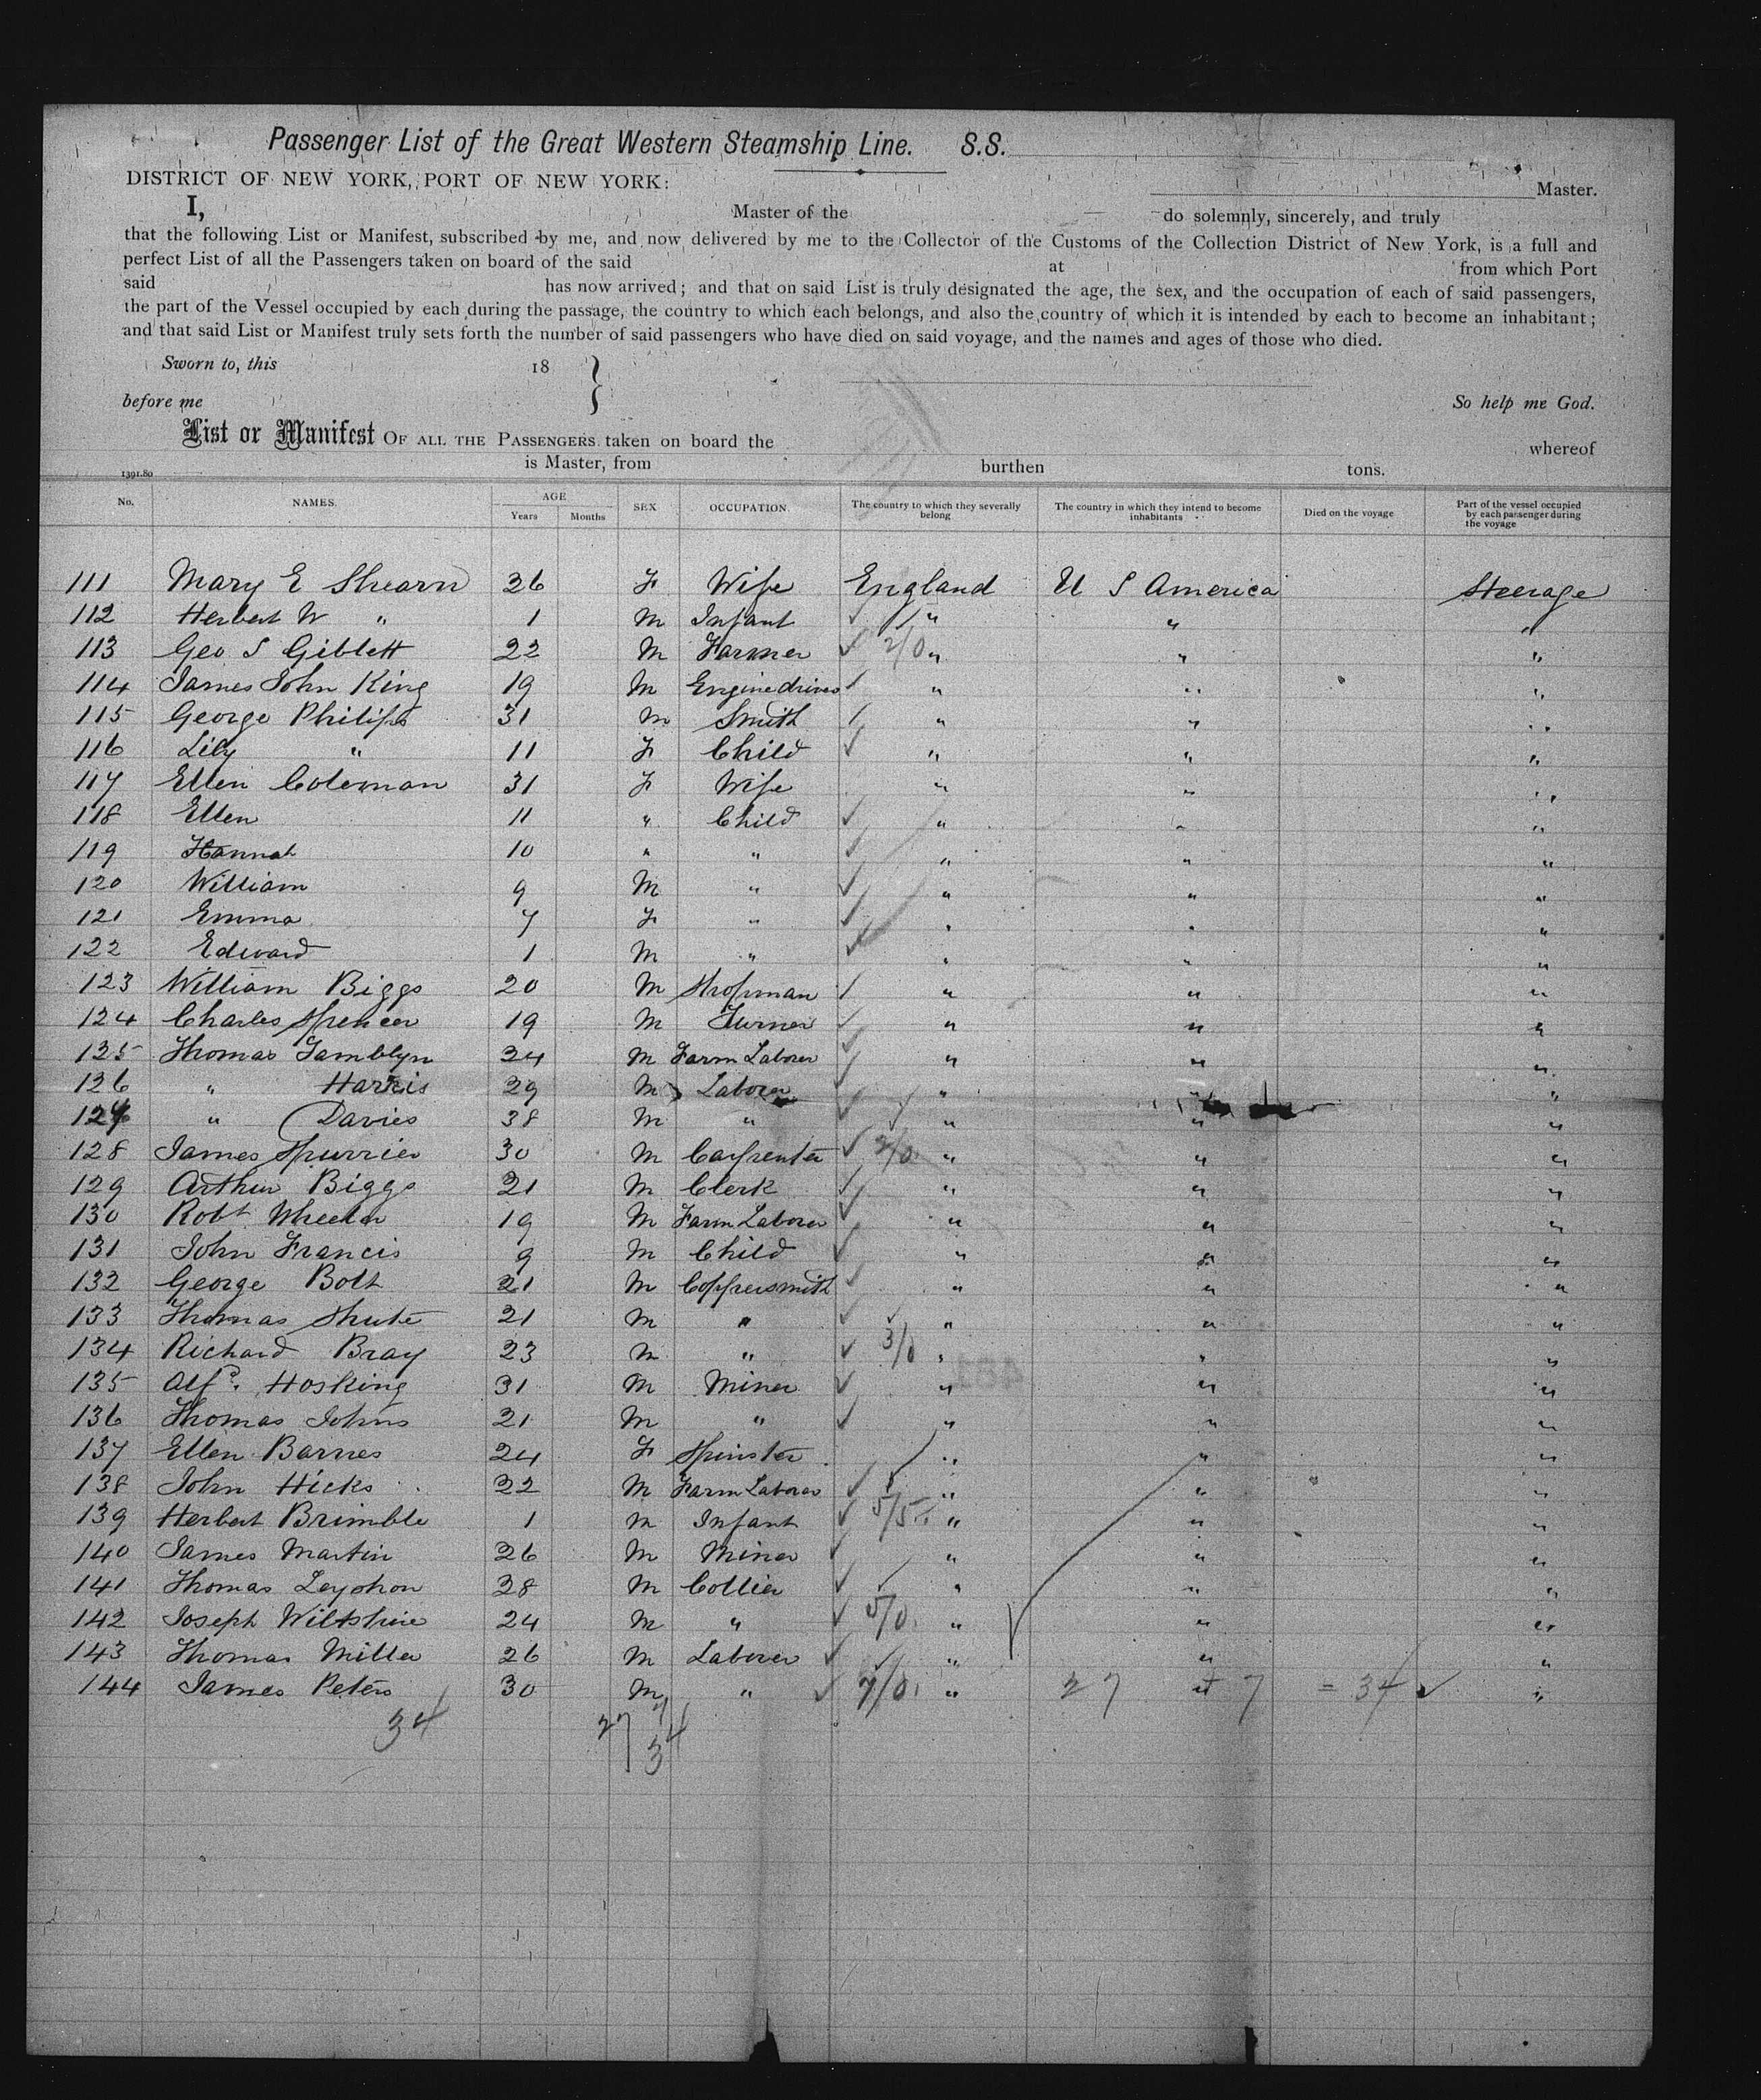 Passenger List of the Great Western Steamship Line. S.S.
DISTRICT OF NEW YORK, PORT OF NEW YORK:
Master.
I, Master of the do solemnly, sincerely, and truly
that the following List or Manifest, subscribed by me, and now delivered by me to the Collector of the Customs of the Collection District of New York, is a full and
perfect List of all the Passengers taken on board of the said at from which Port
said has now arrived; and that on said List is truly designated the age, the sex, and the occupation of each of said passengers,
the part of the Vessel occupied by each during the passage, the country to which each belongs, and also the country of which it is intended by each to become an inhabitant;
and that said List or Manifest truly sets forth the number of said passengers who have died on said voyage, and the names and ages of those who died.
Sworn to, this 18 }
before me So help me God.
List or Manifest OF ALL THE PASSENGERS taken on board the whereof
is Master, from burthen tons.
1391.80
No. NAMES. AGE Years Months SEX OCCUPATION. The country to which they severally belong The country in which they intend to become inhabitants Died on the voyage Part of the vessel occupied by each passenger during the voyage
111 Mary E Shearn 26 F Wife England U S America Steerage
112 Herbert W " 1 M Infant " " "
113 Geo S Giblett 22 M Farmer 2/0 " " "
114 James John King 19 M Enginedriver " " "
115 George Philips 31 M Smith " " "
116 Lily " 11 F Child " " "
117 Ellen Coleman 31 F Wife " " "
118 Ellen 11 " Child " " "
119 Hannah 10 " " " " "
120 William 9 M " " " "
121 Emma 7 F " " " "
122 Edward 1 M " " " "
123 William Biggs 20 M Shopman " " "
124 Charles Spencer 19 M Turner " " "
125 Thomas Tamblyn 24 M Farm Laborer " " "
126 " Harris 29 M Laborer " " "
127 " Davies 38 M " " " "
128 James Spurrier 30 M Carpenter 2/0 " " "
129 Arthur Biggs 21 M Clerk " " "
130 Robt Wheeler 19 M Farm Laborer " " "
131 John Francis 9 M Child " " "
132 George Bolt 21 M Coppersmith " " "
133 Thomas Shute 21 M " " " "
134 Richard Bray 23 M " 3/0 " " "
135 Alfd. Hosking 31 M Miner " " "
136 Thomas Johns 21 M " " " "
137 Ellen Barnes 24 F Spinster " " "
138 John Hicks 22 M Farm Laborer " " "
139 Herbert Brimble 1 M Infant 5/5 " " "
140 James Martin 26 M Miner " " "
141 Thomas Leyshon 28 M Collier " " "
142 Joseph Wiltshire 24 M " 5/0 " " "
143 Thomas Miller 26 M Laborer " " "
144 James Peters 30 M " 7/0 " 27 " 7 = 34 "
34 27 7 34